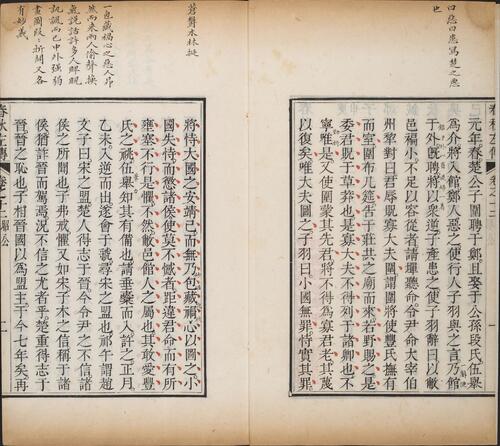 曰惡曰患寫楚之惡
也
元年春楚公子圍聘于鄭且娶于公孫段氏伍舉
為介將入館鄭人惡之使行人子羽與之言乃館
於外既聘將以眾逆子產患之使子羽辭曰以敝
邑褊小不足以容從者請墠聽命令尹命大宰伯
州犂對曰君辱貺寡大夫圍謂圍將使豐氏撫有
而室圍布几筵告于莊共之廟而來若野賜之是
委君貺于草莽也是寡大夫不得列于諸卿也不
寧唯是又使圍蒙其先君將不得為寡君老其蔑
以復矣唯大夫圖之子羽曰小國無罪恃實其罪
將恃大國之安靖己而無乃包藏禍心以圖之小
國失恃而懲諸侯使莫不憾者距違君命而有所
壅塞不行是懼不然敝邑館人之屬也其敢愛豐
氏之祧伍舉知其有備也請垂櫜而入許之正月
乙未入逆而出遂會于虢尋宋之盟也祁午謂趙
文子曰宋之盟楚人得志于晉今令尹之不信諸
侯之所聞也子弗戒懼又如宋子木之信稱于諸
侯猶詐晉而駕焉況不信之尤者乎楚重得志于
晉晉之恥也子相晉國以為盟主于今七年矣再
一包藏禍心之惡人昂
然而來兩人聲換
氣說話許多人睜眼
而已中外強弱
有妙義
春秋左傳
昭公